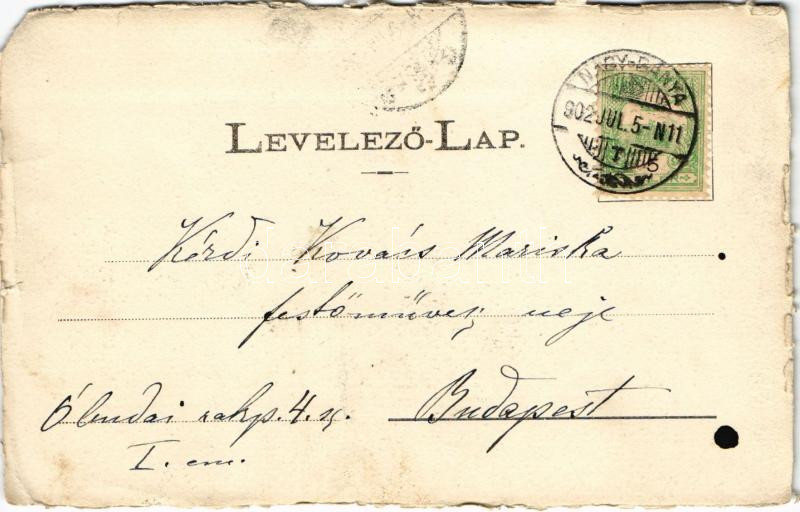 NAGY-BÁNYA
902 JUL. 5-N11
LEVELEZŐ-LAP.
Kézdi Kovács Mariska
festőművész neje
Óbudai rakp. 4. sz. Budapest
I. em.